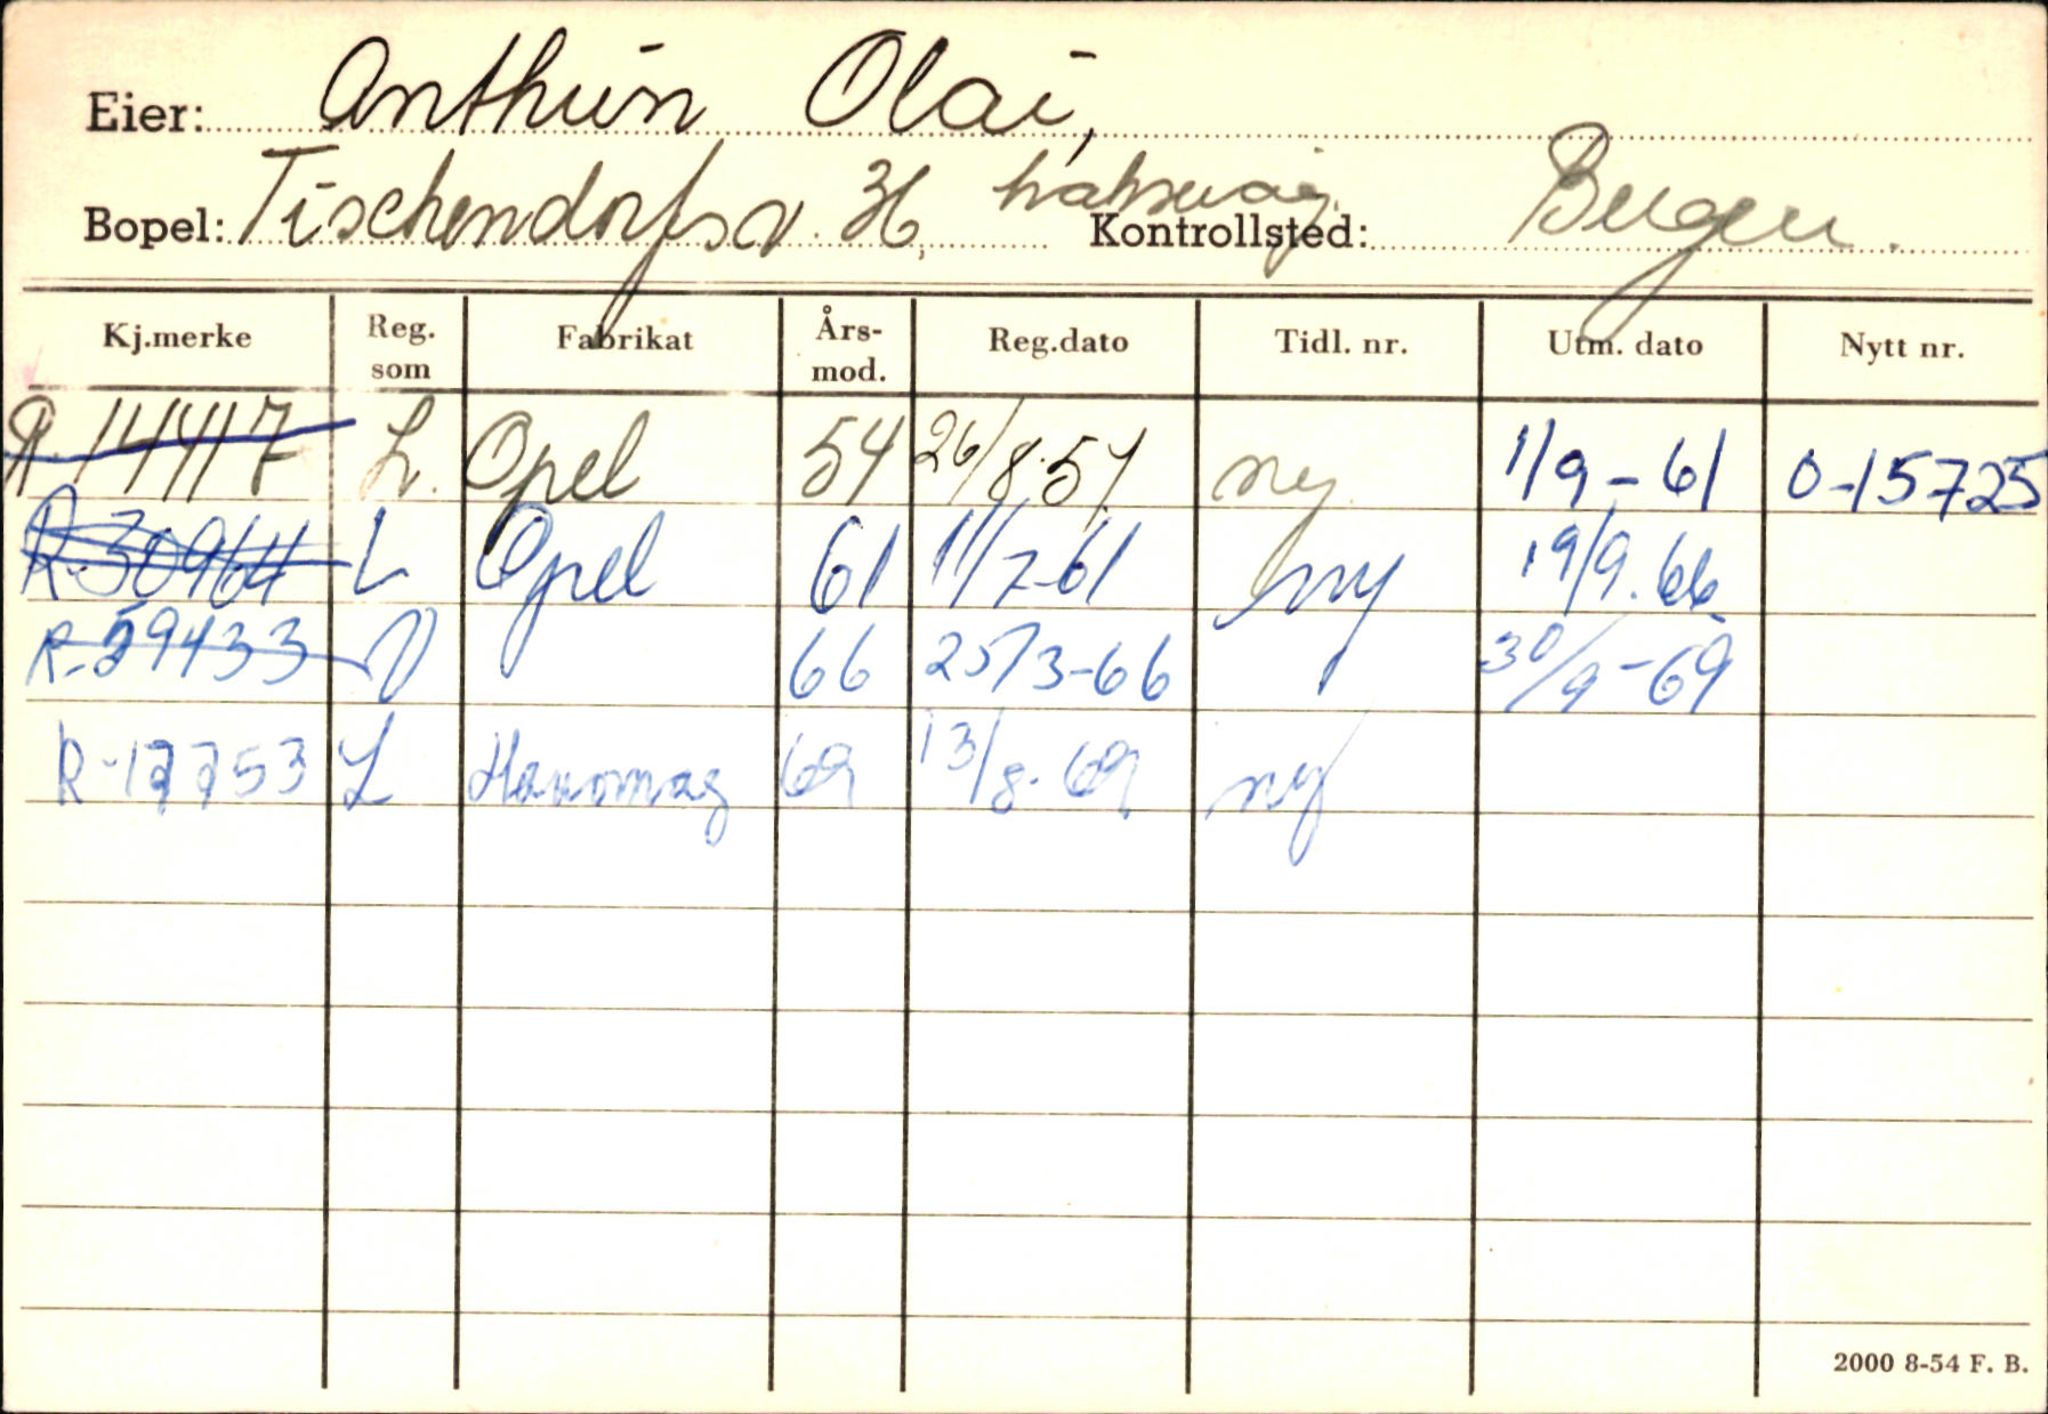 Eier: Anthun, Olai,
Bopel: Tischendorfsv. 36, Kontrollsted: Bergen.
Kj.merke Reg. som Fabrikat Års-mod. Reg.dato Tidl. nr. Utm. dato Nytt nr.
R.14417 L. Opel 54 26/8.54 ny 1/9-61 O-15725
R-30964 L Opel 61 11/7-61 ny 19/9.66
R-59433 V 66 25/3-66 30/9-69
R-17753 L Hanomag 69 13/8.69 ny
2000 8-54 F. B.